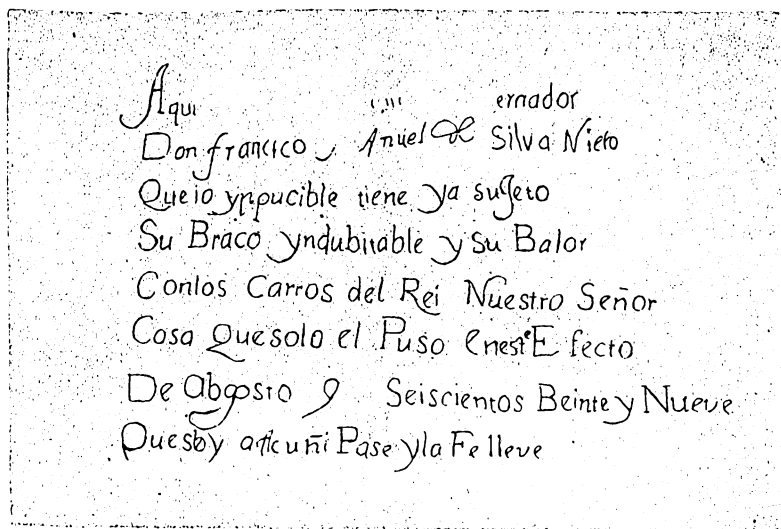 Aqui ernador
Don francico Anuel de Silva Nieto
Que io ynpucible tiene ya sugeto
Su Braco yndubitable y Su Balor
Conlos Carros del Rei Nuestro Señor
Cosa Quesolo el Puso Eneste Efecto
De Abgosto 9 Seiscientos Beinte y Nueve
Quesoy a Cuñi Pase yla Fe lleve